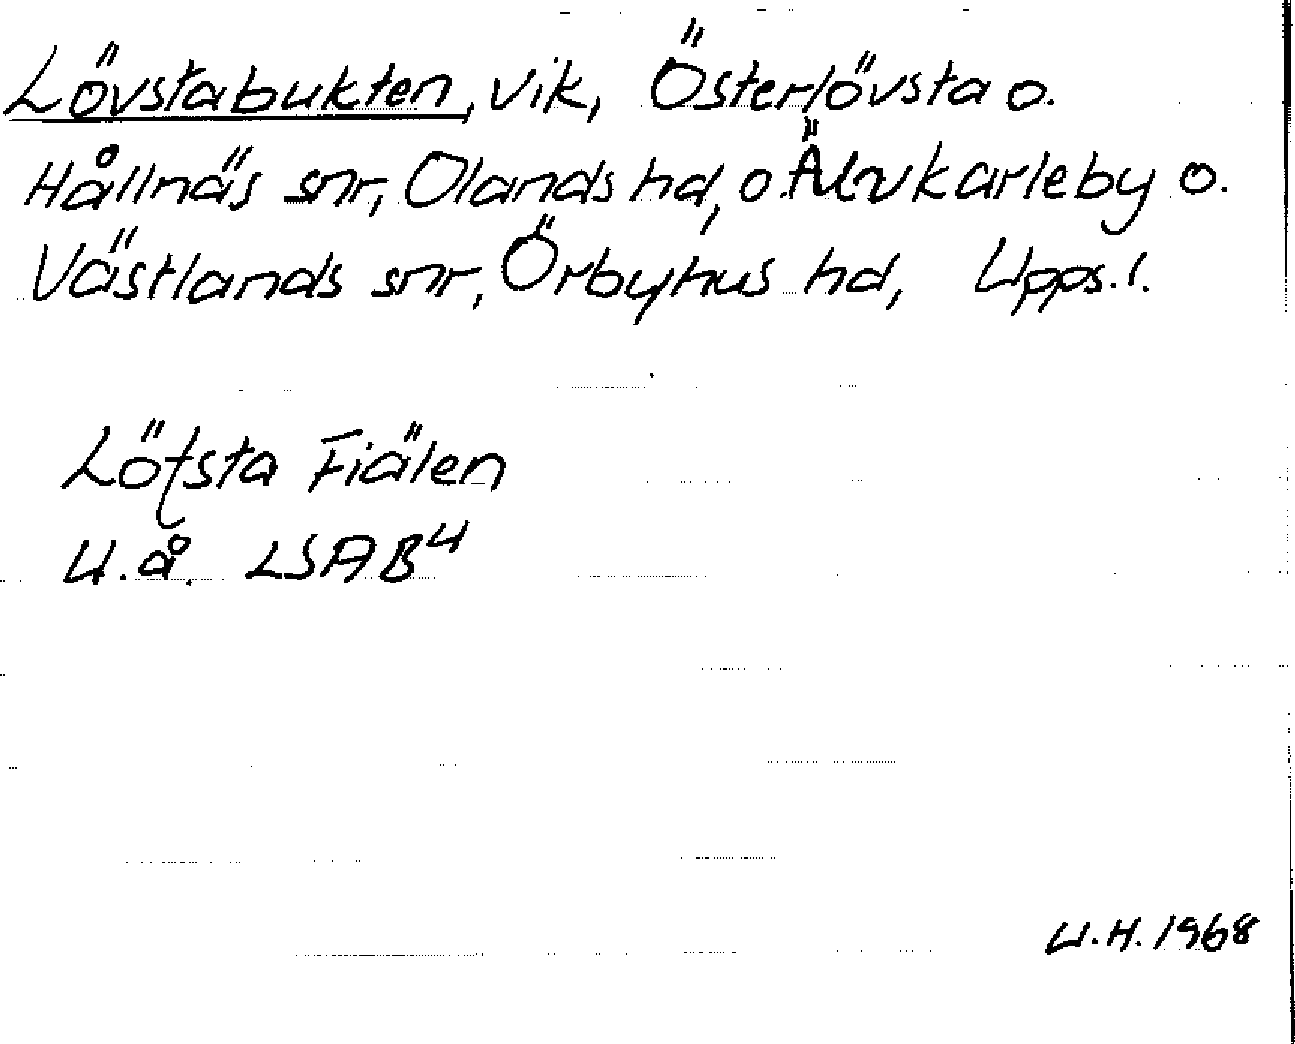 Lövstabukten, vik, Österlövsta o.
Hållnäs snr, Olands hd, o. Älvkarleby o.
Västlands snr, Örbyhus hd, Upps. l.
Löfsta Fiälen
U.å. LSAB4
U.H. 1968